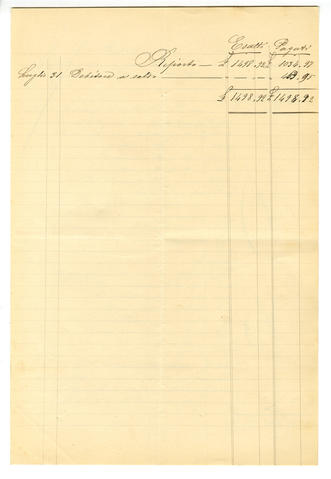 Esatti Pagati
Riporto — £ 1498,92 £ 1034,97
Luglio 31 Debitore a saldo — 
£ 1498,92 £ 1498,92